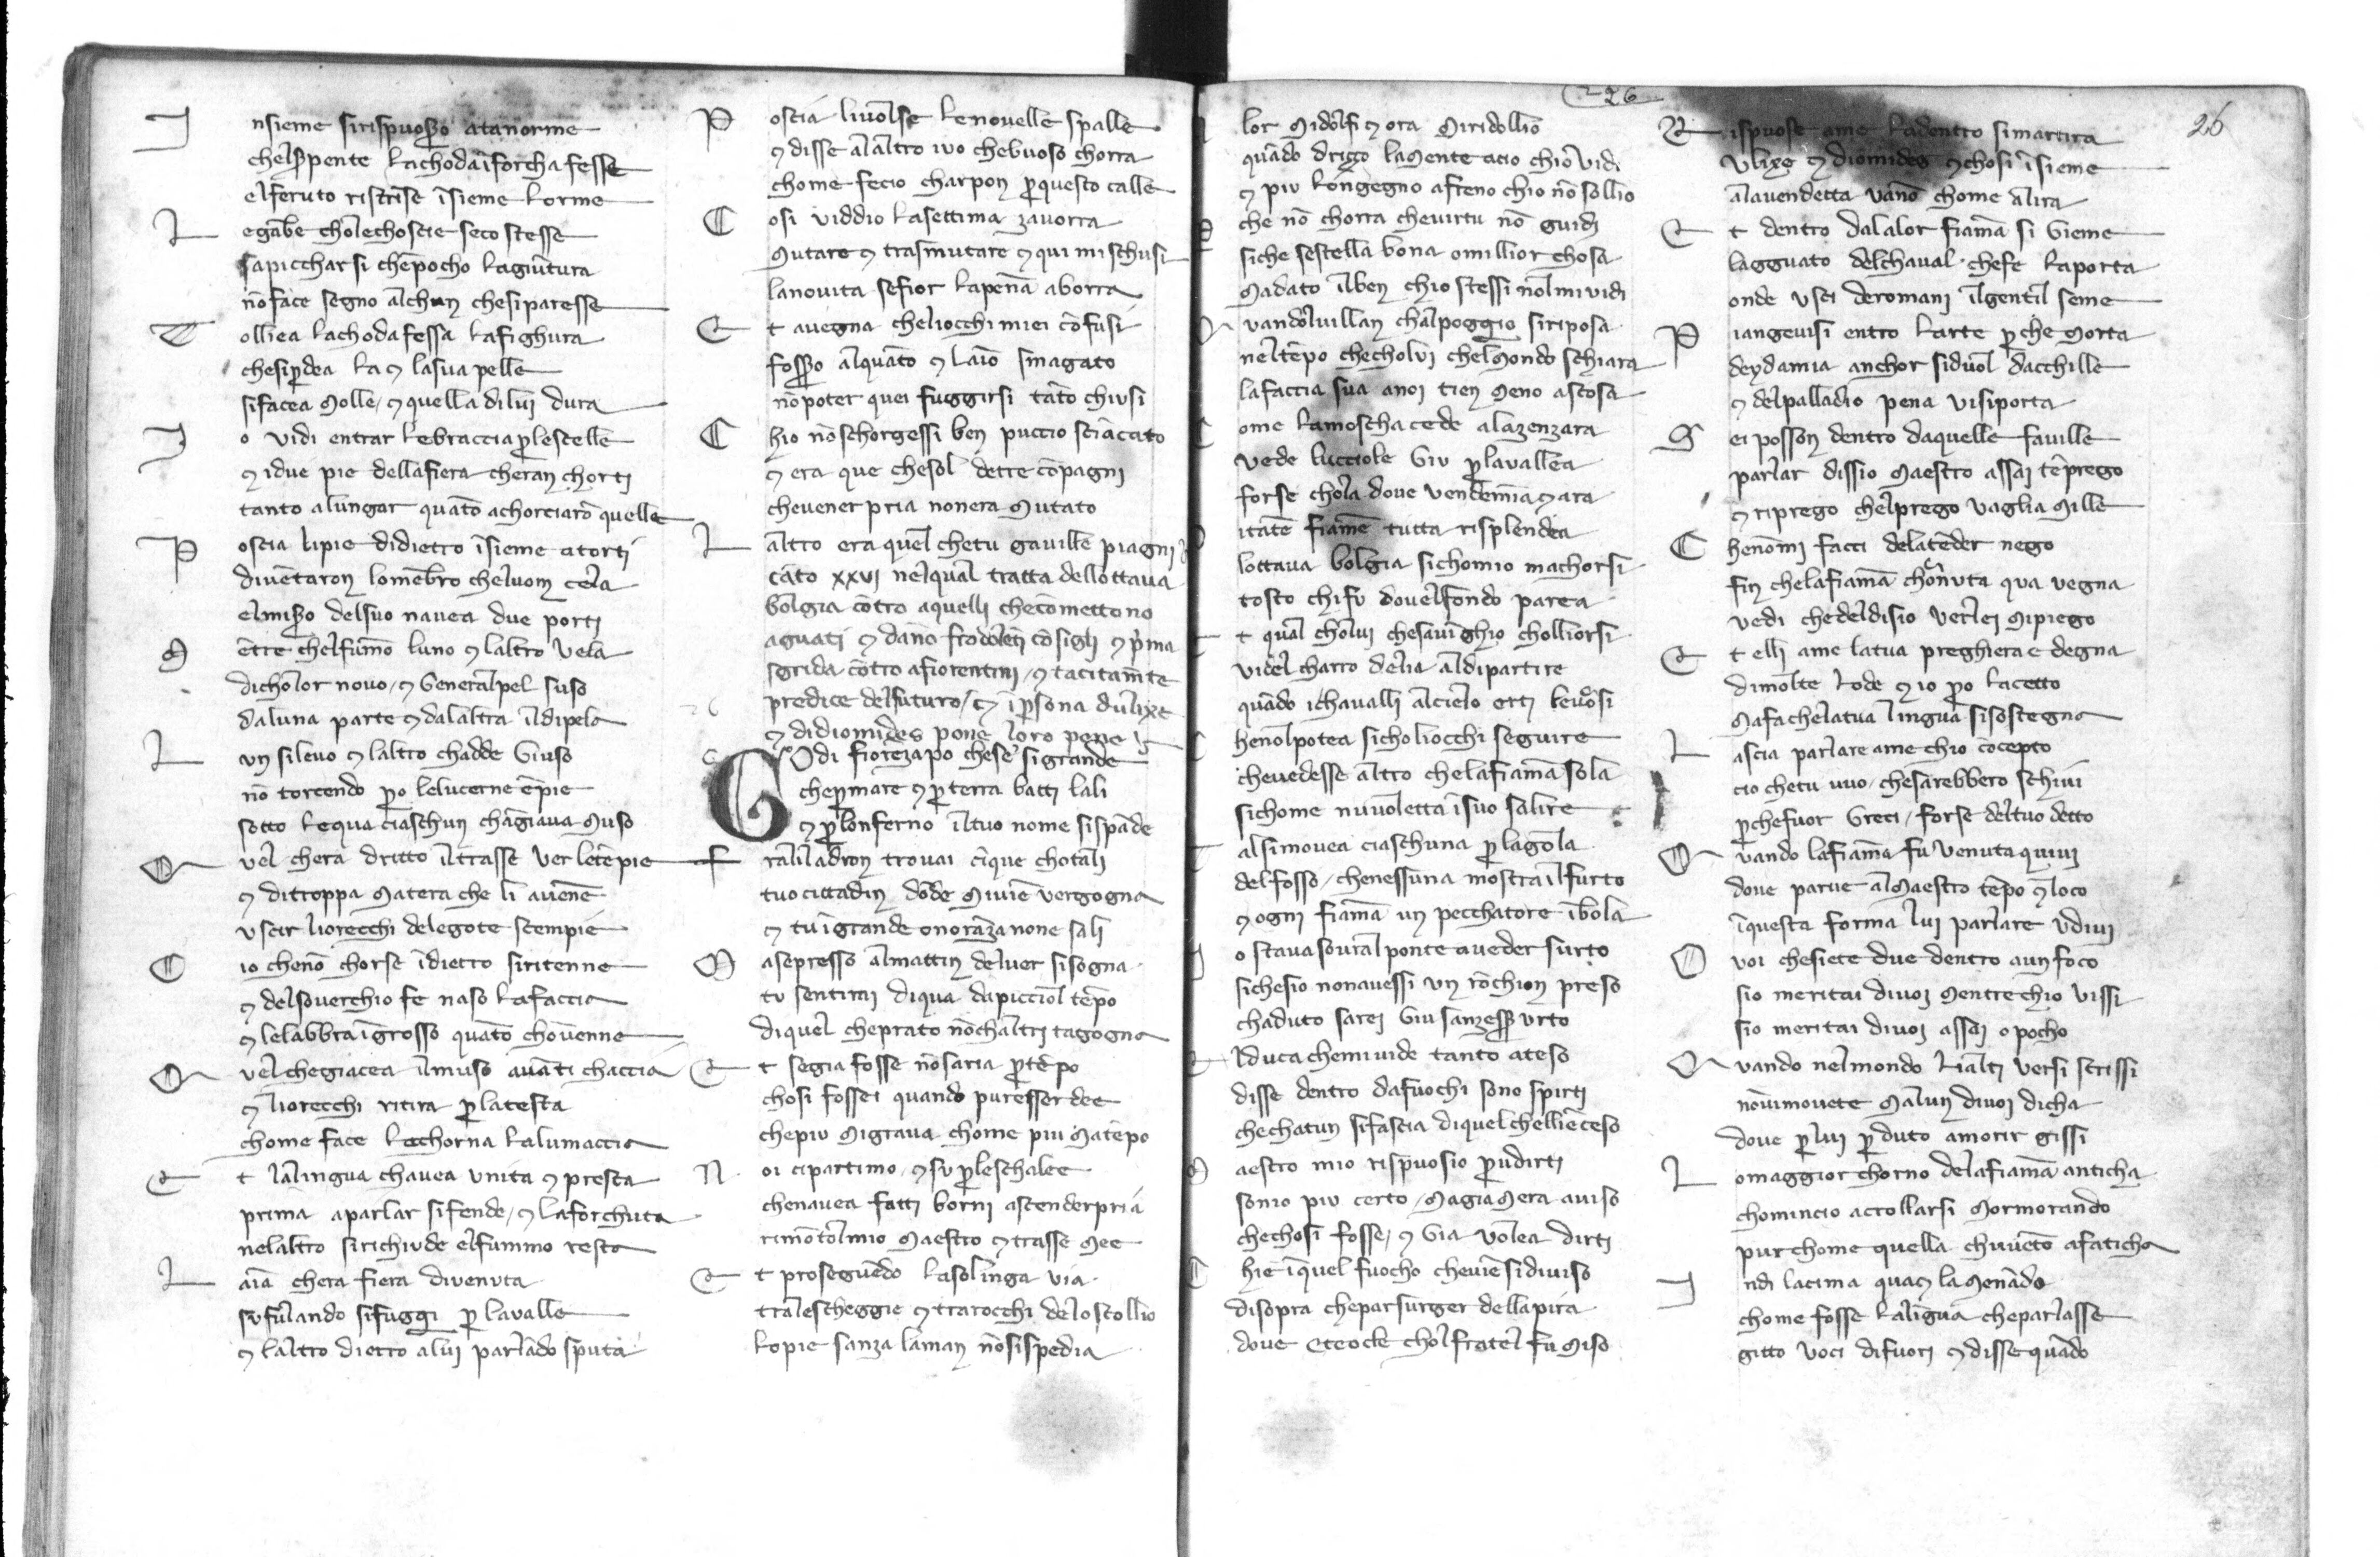 I nsieme sirispuoßo atanorme
chelßpente lachodaĩforcha fesse
elferuto ristrĩse ĩsieme lorme
L egãbe cholechoscie seco stesse
sapicchar si chepocho lagiũtura
nõ face segno alchun chesiparesse
T olliea lachodafessa lafighura
chesipdea la ⁊ lasua pelle
sifacea molle / ⁊ quella dilui dura
I o vidi entrar lebraccia plescelle
⁊ idue pie dellafiera cheran chorti
tanto alungar quãto achorciarõ quelle
P oscia lipie didietro ĩsieme atorti
diuẽtaron lomẽbro cheluom cela
elmißo delsuo nauea due porti
M ẽtre chelfumõ luno ⁊ laltro vela
dicholor nouo / ⁊ Generalpel suso
daluna parte ⁊ dalaltra ildipela
L un sileuo ⁊ laltro chadde Giuso
nõ torcendo po lelucerne ẽpie
sotto lequa ciaschun chãgiaua muso
Q vel chera dritto iltrasse ver letẽpie
⁊ ditroppa matera che li auẽne
vscir liorecchi delegote scempie
C io chenõ chorse ĩdietro siritenne
⁊ delsouerchio fe naso lafaccia
⁊ lelabbra ĩgrosso quãto chouenne
Q vel chegiacea ilmuso auãti chaccia
⁊ liorecchi ritira platesta
chome face lechorna lalumaccia
E t lalingua chauea vnita ⁊ presta
prima aparlar sifende / ⁊ laforchuta
nelaltro sirichiude elfummo resta
L aĩa chera fiera diuenuta
sufulando sifuggi p lavalle
⁊ laltro dietro alui parlãdo sputa
P oscia liuolse lenouelle spalle
⁊ disse alaltro ivo chebuoso chorra
chome fecio charpon pquesto calle
C osi viddio lasettima zauorra
mutare ⁊ trasmutare ⁊ qui mi schusi
lanouita sefior lapenã aborra
E t auegna cheliocchi miei cõfusi
foßo alquãto ⁊ laĩo smagato
nõ poter quei fuggirsi tãto chiusi
C hio nõschorgessi ben puccio sciãcato
⁊ era que chesol detre cõpagni
cheuener pria nonera mutato
L altro era quel chetu gauille piagni
cãto xxvi nelqual tratta dellottaua
bolgia cõtro aquelli checõmettono
aguati ⁊ dãno frodolẽti cõsigli ⁊ pma
sgrida cõtro afiorentini / ⁊ tacitamte
predice delfuturo / ⁊ ĩpsona dulixe
⁊ didiomides pone loro pene
G Odi fiorẽza po chese sigrande
chepmare ⁊ pterra batti lali
⁊ plonferno iltuo nome sispãde
T raliladron trouai cĩque chotali
tuo cittadin dõde miuiẽ vergogna
⁊ tu ĩgrande onorãza none sali
M asepresso almattin deluer sisogna
tu sentirai diqua dapicciol tẽpo
diquel cheprato nõchaltri tagogna
E t segia fosse nõsaria ptẽpo
chosi fossei quando puresser dee
chepiu migraua chome piu matẽpo
N oi cipartimo / ⁊ su pleschalee
chenauea fatti borni ascender pria
rimõtolmio maestro ⁊ trasse mee
E t proseguẽdo lasolinga via
tralescheggie ⁊ trarocchi deloscollio
lopie sanza laman nõsispedia
A lor midolfi ⁊ ora miridollio
quãdo drizzo lamente acio chio vidi
⁊ piu longegno afreno chio nõ sollio
P che nõ chorra chevirtu nõ guidi
siche sestella bona omillior chosa
madato ilben chio stessi nolmi vidi
Q vandoluillan chalpoggio siriposa
neltẽpo checholui chelmondo schiara
lafaccia sua anoi tien meno ascosa
C ome lamoscha cede alazenzara
vede lucciole Giu plavallea
forse chola doue vendemia ⁊ ara
D itãte fiãme tutta risplendea
lottaua bolgia sichomio machorsi
tosto chifu douelfondo parea
E t qual cholui chesauĩghio cholliorsi
videl charro delia aldipartire
quãdo ichaualli alcielo erti leuorsi
C henolpotea sicholiocchi seguire
cheuedesse altro chelafiamã sola
sichome nuuoletta ĩsuo salire
T al simouea ciaschuna plagola
delfosso / chenessuna mostrailfurto
⁊ ogni fiamã un pecchatore ĩbola
I o staua soural ponte aueder surto
sichesio nonauessi un rõchion preso
chaduto sarei Giu sanzeßurto
E lduca chemiuide tanto ateso
disse dentro dafuochi sono spirti
chechatun sifascia diquel chelliẽceso
M aestro mio rispuosio pudirti
sonio piu certo / magia mera auiso
chechosi fosse / ⁊ Gia volea dirti
C hie ĩquel fuocho cheuiẽ sidiuiso
disopra cheparsurger dellapira
doue eteocle cholfratel fu miso
26
R ispuose ame ladentro simartira
Vlixe ⁊ diomides ⁊ chosi ĩsieme
alauendetta vãno chome alira
E t dentro dalalor fiamã si Gieme
lagguato delchaual chefe laporta
onde vsci deromani ilgentil seme
P iangeuisi entro larte p che morta
deydamia anchor siduol dacchille
⁊ delpalladio pena visiporta
S ei posson dentro daquelle fauille
parlar dissio maestro assai tẽprego
⁊ riprego chelprego vaglia mille
C henomi facci delatẽder nego
fin chelafiamã chornuta qua vegna
vedi chedeldisio verlei mipiego
E t elli ame latua preghiera e degna
dimolte lode ⁊ io po lacetto
mafachelatua lingua sisostegna
L ascia parlare ame chio cõcepto
cio chetu uuo / chesarebbero schiui
pchefuor Greci / forse deltuo detto
Q vando lafiama fu venuta quiui
doue parue almaestro tẽpo ⁊ loco
ĩquesta forma lui parlare vdiui
O voi chesiete due dentro aun foco
sio meritai diuoi mentrechio vissi
sio meritai diuoi assai o pocho
Q vando nelmondo lialti versi scrissi
nõuimouete malun diuoi dicha
doue plui pduto amorir gissi
L omaggior chorno delafiamã anticha
chomincio acrollarsi mormorando
pur chome quella chuuẽto afaticha
I ndi lacima qua ⁊ la menãdo
chome fosse lalĩgua cheparlasse
gitto voci difuori ⁊ disse quãdo
26